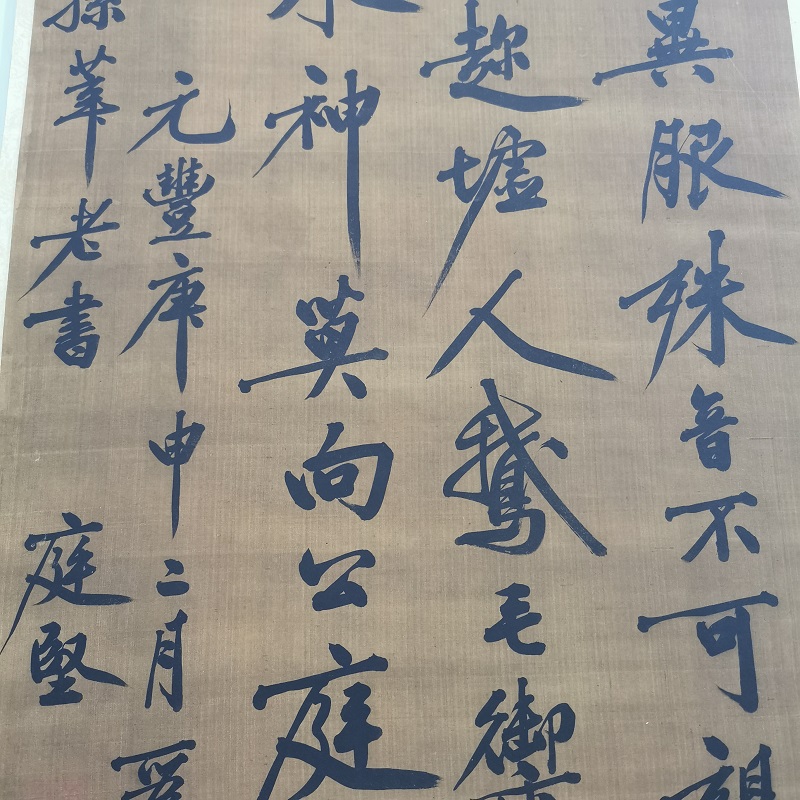 異服殊音不可
趂墟人鵝毛御
水神莫向公庭
元豐庚申二月
孫莘老書 庭堅